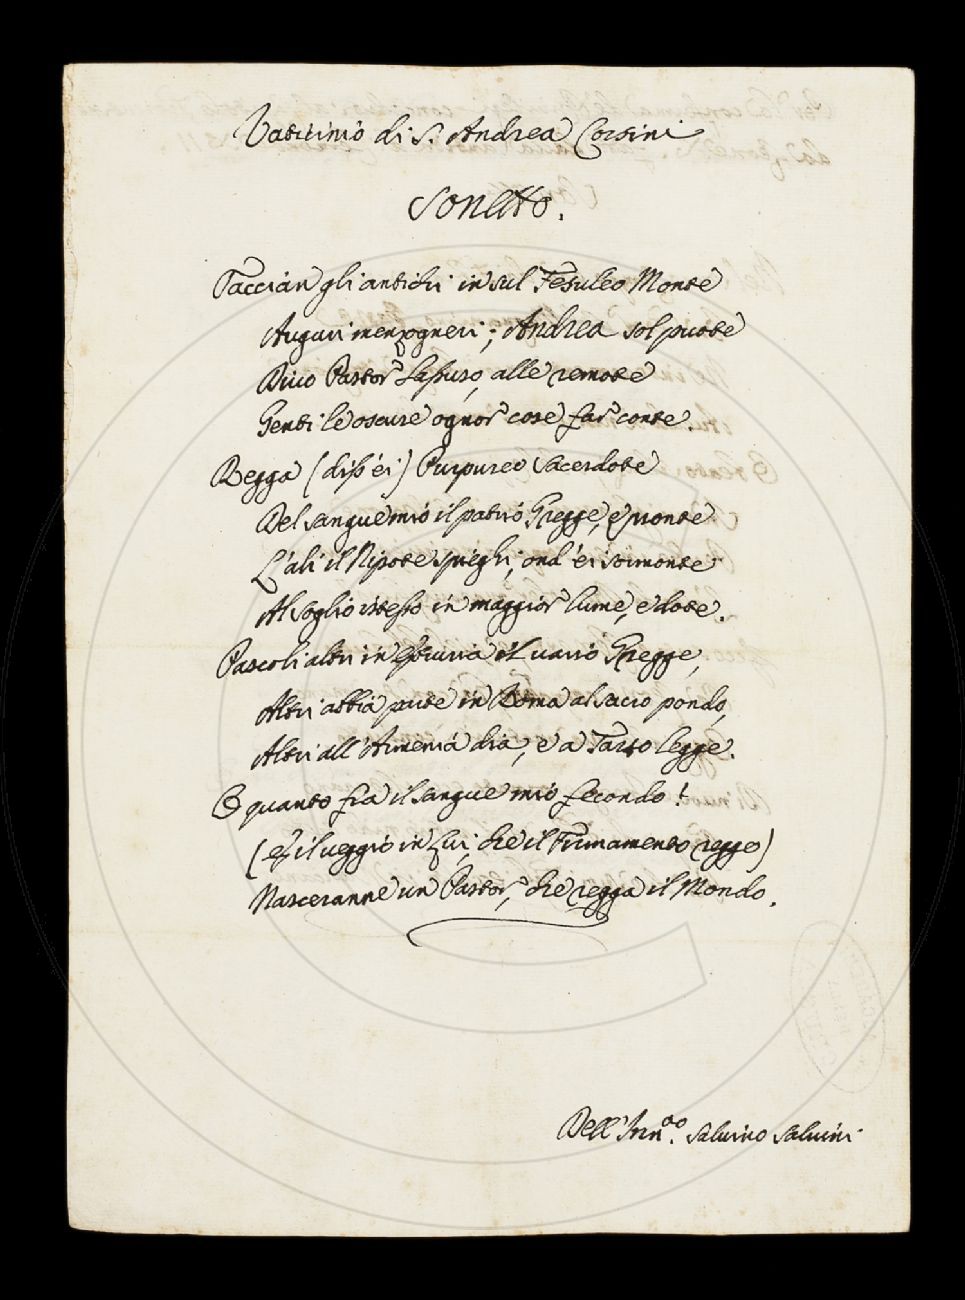 Vaticinio di S. Andrea Corsini
Sonetto.
Taccian gli antichi in sul Fesuleo Monte
Auguri menzogneri; Andrea sol puote
Divo Pastor lassuso, alle remote
Genti le oscure ognor cose far conte.
Regga (diss'ei) Purpureo Sacerdote
Del sangue mio il patrio Gregge, e pronte
L'ali il Nipote spieghi, ond'ei sormonte
Al soglio istesso in maggior lume, e dote.
Pascoli altri in Etruria il vario Gregge,
Altri abbia pure in Roma al sacro pondo,
Altri all'Armenia dia, e a Tarso legge.
O quanto fia il sangue mio fecondo!
(e il veggio in Lui, che il Firmamento regge)
Nasceranne un Pastor, che regga il Mondo.
Dell' Salvino Salvini